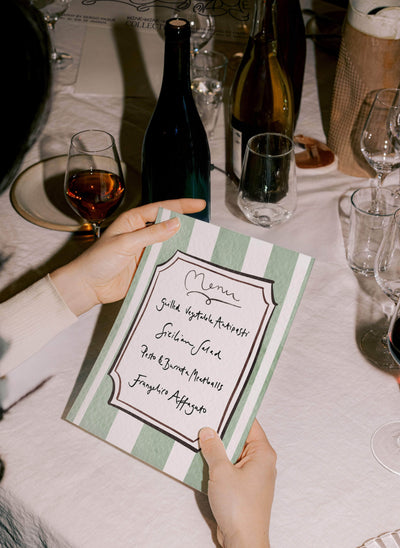 COLLECT
Menu
Grilled Vegetable Antipasti
Sicilian Salad
Pesto & Burrata Meatballs
Frangelico Affagato